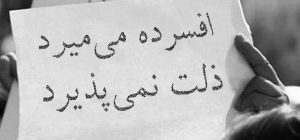 افسرده می‌میرد
ذلت نمی‌پذیرد